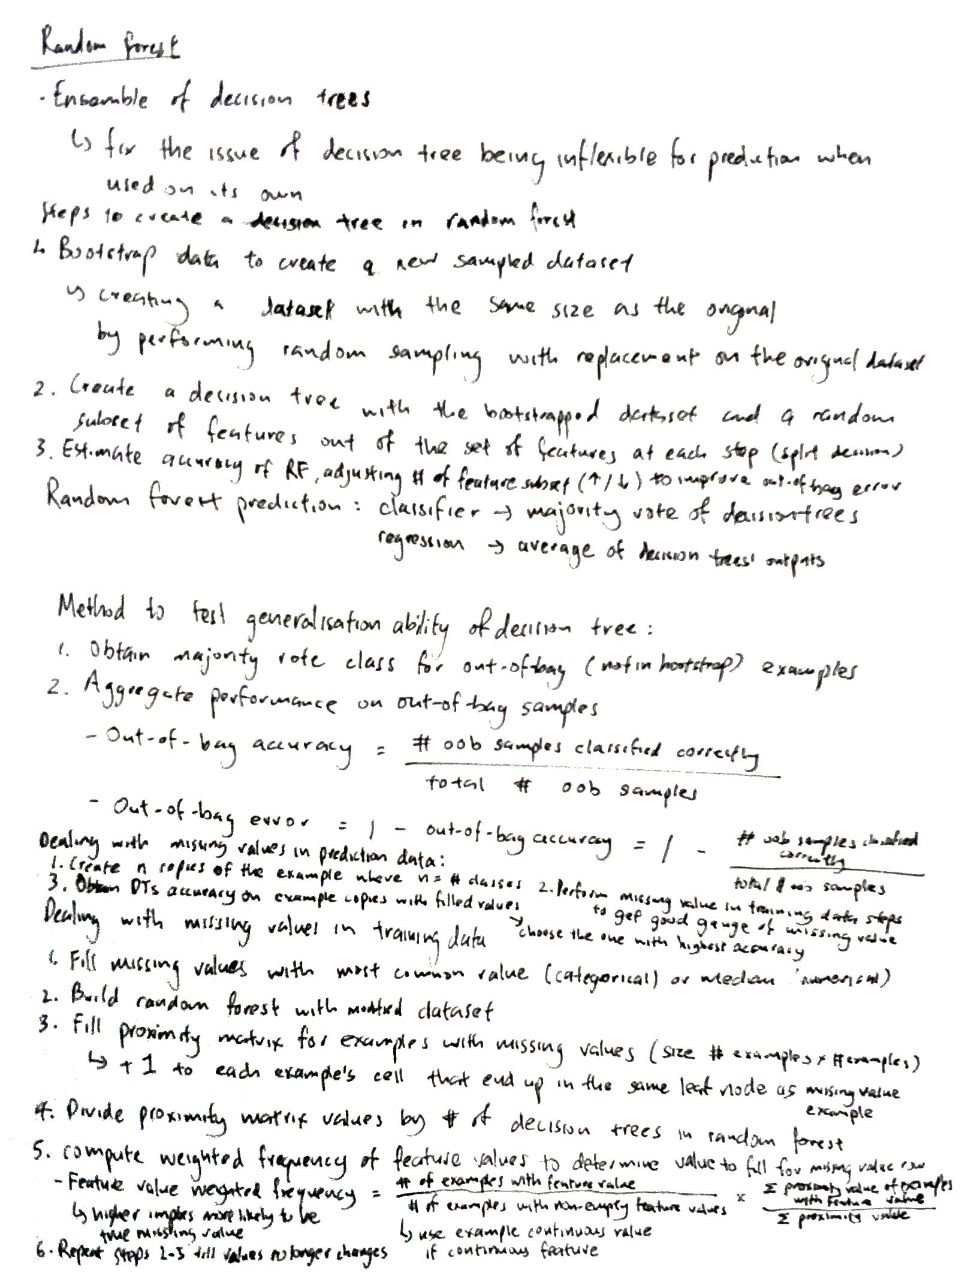 Random forest
- Ensemble of decision trees
↳ fix the issue of decision tree being inflexible for prediction when
used on its own
Steps to create a decision tree in random forest
1. Bootstrap data to create a new sampled dataset
↳ creating a dataset with the same size as the original
by performing random sampling with replacement on the original dataset
2. Create a decision tree with the bootstrapped dataset and a random
subset of features out of the set of features at each step (split decision)
3. Estimate accuracy of RF, adjusting # of feature subset (↑/↓) to improve out-of-bag error
Random forest prediction : classifier → majority vote of decision trees
regression → average of decision trees' outputs
Method to test generalisation ability of decision tree :
1. Obtain majority vote class for out-of-bag (not in bootstrap) examples
2. Aggregate performance on out-of-bag samples
- Out-of-bag accuracy = # oob samples classified correctly
total # oob samples
- Out-of-bag error = 1 - out-of-bag accuracy = 1 - # oob samples classified
correctly
total # oob samples
Dealing with missing values in prediction data:
1. Create n copies of the example where n = # classes 2. Perform missing value in training data steps
to get good gauge of missing value
3. Obtain DTs accuracy on example copies with filled values
↘ choose the one with highest accuracy
Dealing with missing values in training data
1. Fill missing values with most common value (categorical) or median (numerical)
2. Build random forest with modified dataset
3. Fill proximity matrix for examples with missing values (size # examples × # examples)
↳ +1 to each example's cell that end up in the same leaf node as missing value
example
4. Divide proximity matrix values by # of decision trees in random forest
5. compute weighted frequency of feature values to determine value to fill for missing value
- Feature value weighted frequency = # of examples with feature value × Σ proximity value of examples
with feature value
# of examples with non-empty feature values Σ proximity value
↳ higher implies more likely to be
true missing value
↳ use example continuous value
if continuous feature
6. Repeat steps 2-5 till values no longer changes